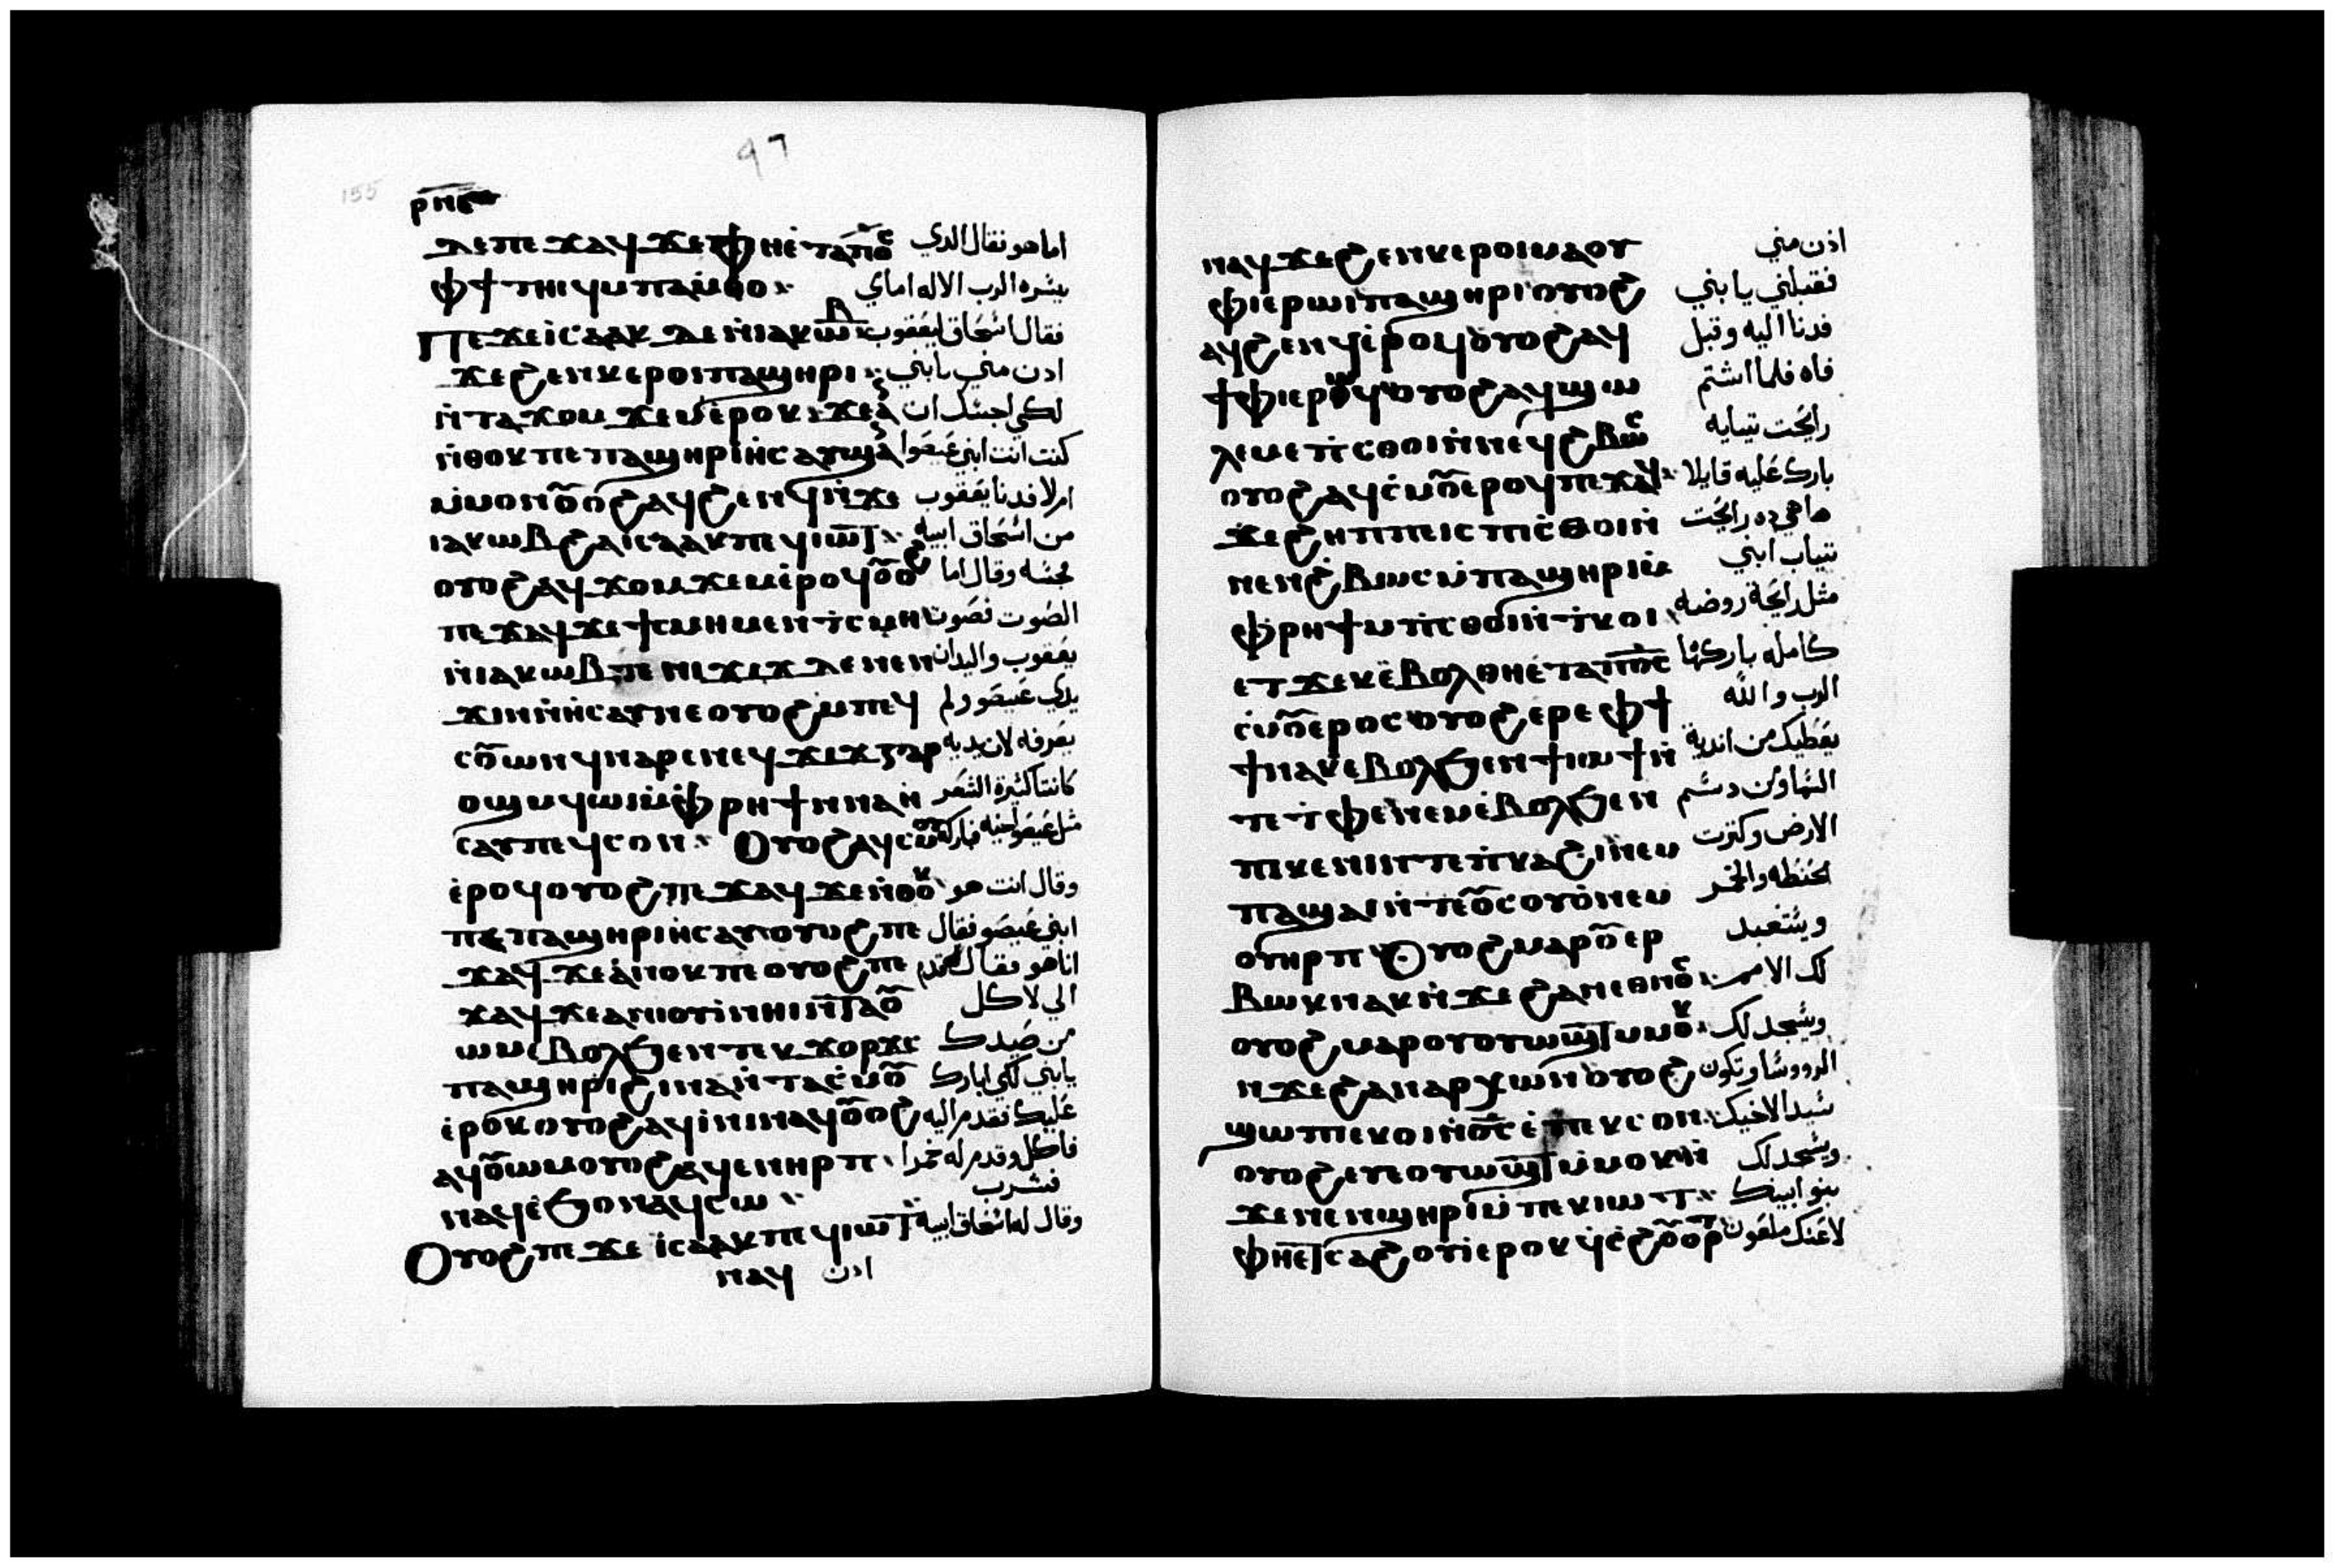 97
155
ⲣⲛⲉ
ⲇⲉⲡⲉϫⲁϥϫⲉⲫⲏⲉ̀ⲧⲁⲡⲟ̅ⲥ̅ اما هو فقال الدي
ⲫϯⲧⲏⲓϥⲙⲡⲁⲙ̀ⲑⲟ ييسره الرب الاله امامي
ⲡⲉϫⲉⲓ̀ⲥⲁⲁⲕⲇⲉⲛ̀ⲓⲁⲕⲱⲃ فقال اسحاق ليعقوب
ϫⲉϧⲉⲛⲕⲉⲣⲟⲓⲡⲁϣⲏⲣⲓ ادن مني يابني
ⲛ̀ⲧⲁϫⲟⲙϫⲉⲙⲉ̀ⲣⲟⲕϫⲉⲁ̀ لكي اجسك ان
ⲛ̀ⲑⲟⲕⲡⲉⲡⲁϣⲏⲣⲓⲛ̀ⲥⲁⲩϣⲁ̀ كنت انت ابني عيصوا
ⲙ̀ⲙⲟⲛⲟ̅ⲟϩⲁϥϧⲉⲛϥⲛ̀ϫⲉ ام لا فدنا يعقوب
ⲓⲁⲕⲱⲃϩⲁⲓⲥⲁⲁⲕⲡⲉϥⲓⲱⲧ من اسحاق ابيه
ⲟⲩⲟϩⲁϥϫⲟⲙϫⲉⲙⲉ̀ⲣⲟϥⲟ̅ⲟϩ فجسه وقال اما
ⲡⲉϫⲁϥϫⲉϯⲥⲙⲏⲙⲉⲛⲧ̀ⲥⲙⲏ الصوت فصوت
ⲛ̀ⲓⲁⲕⲱⲃⲡⲉⲛⲓϫⲓϫⲇⲉⲛⲉⲛ يعقوب واليدان
ϫⲓⲛⲛ̀ⲏⲥⲁⲩⲛⲉⲟⲩⲟϩⲙ̀ⲡⲉϥ يدي عيصو ولم
ⲥⲟ̅ⲱⲛϥⲛⲁⲣⲉⲛⲉϥϫⲓϫⲅⲁⲣ يعرفه لان يديه
ⲟϣⲙϥⲱⲓⲙ̀ⲫⲣⲏϯⲛⲛⲁⲏ̀ كانتا كثيرة الشعر
ⲥⲁⲩⲡⲉϥⲥⲟⲛ Ⲟⲩⲟϩⲁϥⲥⲙⲟ̅ⲩ مثل عيصو اخيه فباركه
ⲉ̀ⲣⲟϥⲟⲩⲟϩⲡⲉϫⲁϥϫⲉⲛ̀ⲑⲟ̅ⲕ وقال انت هو
ⲡⲉⲡⲁϣⲏⲣⲓⲏ̀ⲥⲁⲩⲟⲩⲟϩⲡⲉ ابني عيصو فقال
ϫⲁϥϫⲉⲁ̀ⲛⲟⲕⲡⲉⲟⲩⲟϩⲡⲉ انا هو فقال قدم
ϫⲁϥϫⲉⲁⲛⲓⲟⲩⲓ̀ⲛⲏⲓⲛ̀ⲧⲁⲟ̅ الي لاكل
ⲱⲙⲉ̀ⲃⲟⲗϧⲉⲛⲡⲉⲕϫⲟⲣϫⲥ من صيدك
ⲡⲁϣⲏⲣⲓϩⲓⲛⲁⲛ̀ⲧⲁⲥ̀ⲙⲟ̅ يابني لكي ابارك
ⲉ̀ⲣⲟⲕⲟⲩⲟϩⲁϥⲓ̀ⲛⲓⲛⲁϥⲟ̅ⲟϩ عليك فقدم اليه
ⲁϥⲟ̅ⲱⲙⲟⲩⲟϩⲁϥⲉⲛⲏⲣⲡ فاكل وقدم له خمرا
ⲛⲁϥⲉ̀ϧⲟⲛⲁϥⲥⲱ فشرب
Ⲟⲩⲟϩⲡⲉϫⲉⲓ̀ⲥⲁⲁⲕⲡⲉϥⲓⲱⲧ وقال له اسحاق ابيه
ⲛⲁϥ ادن
ⲛⲁϥϫⲉϧⲉⲛⲕⲉⲣⲟⲓⲙⲁⲟⲩ ادن مني
ⲫⲓⲉⲣⲱⲓⲡⲁϣⲏⲣⲓⲟⲩⲟϩ فقبلني يا بني
ⲁϥϧⲉⲛϥⲉ̀ⲣⲟϥⲟⲩⲟϩⲁϥ فدنا اليه وقبل
ϯⲫⲓⲉⲣⲱϥⲟⲩⲟϩⲁϥϣⲱ فاه فلما اشتم
ⲗⲉⲙⲉⲡ̀ⲥⲑⲟⲓⲛ̀ⲛⲉϥϩⲃⲱⲥ رايحت تيابه
ⲟⲩⲟϩⲁϥⲥ̀ⲙⲟ̅ⲉⲣⲟϥⲡⲉϫⲁϥ بارك عليه قايلا
ϫⲉϩⲏⲡⲡⲉⲓⲥⲡⲓⲥ̀ⲑⲟⲓⲛ̀ ها هي ده رايحت
ⲛⲉⲛϩⲃⲱⲥⲙ̀ⲡⲁϣⲏⲣⲓⲙ̀ تياب ابني
ⲫⲣⲏϯⲙⲡ̀ⲥⲑⲟⲓⲛ̀ⲧ̀ⲕⲟⲓ مثل رايحة روضه
ⲉⲧϫⲉⲕⲉ̀ⲃⲟⲗⲑⲏⲉ̀ⲧⲁⲡⲟ̅ⲥ̅ كامله باركها
ⲥ̀ⲙⲟ̅ⲉⲣⲟⲥⲟⲩⲟϩⲉⲣⲉⲫϯ الرب والله
ϯⲛⲁⲕⲉⲃⲟⲗϧⲉⲛϯⲓⲱϯⲛ̀ يعطيك من اندية
ⲧⲉⲧ̀ⲫⲉⲛⲉⲙⲉ̀ⲃⲟⲗϧⲉⲛ السما ومن دسم
ⲡⲓⲕⲉⲛⲓⲓⲧⲉⲡ̀ⲕⲁϩⲓⲛⲉⲙ الارض وكترت
ⲡⲁϣⲁⲓⲛ̀ⲧⲉⲟ̅ⲥⲟⲩⲟ̀ⲛⲉⲙ الحنطه والخمر
ⲟⲩⲏⲣⲡ Ⲟⲩⲟϩⲙⲁⲣⲟ̅ⲉⲣ ويستعبد
ⲃⲱⲕⲛⲁⲕⲛ̀ϫⲉϩⲁⲛⲉⲑⲛⲟ̅ⲥ لك الامم
ⲟⲩⲟϩⲙⲁⲣⲟⲩⲟⲩⲱϣⲧⲙⲙⲟ̅ⲕ ويسجد لك
ⲛϫⲉϩⲁⲛⲁⲣⲭⲱⲛⲟⲩⲟϩ الرووسا وتكون
ϣⲱⲡⲉⲕⲟⲓⲛ̀ⲟ̅ⲥ̅ⲉ̀ⲡⲉⲕⲥⲟⲛ سيدا لاخيك
ⲟⲩⲟϩⲉⲩⲉⲟⲩⲱϣⲧⲙ̀ⲙⲟⲕⲛ̀ ويسجد لك
ϫⲉⲛⲉⲛϣⲏⲣⲓⲙ̀ⲡⲉⲕⲓⲱⲧ بنو ابيك
ⲫⲏⲉⲧⲥⲁϩⲟⲩⲓⲉⲣⲟⲕϥⲥ̀ϩⲟ̅ⲟⲣⲧ لاعنك ملعون